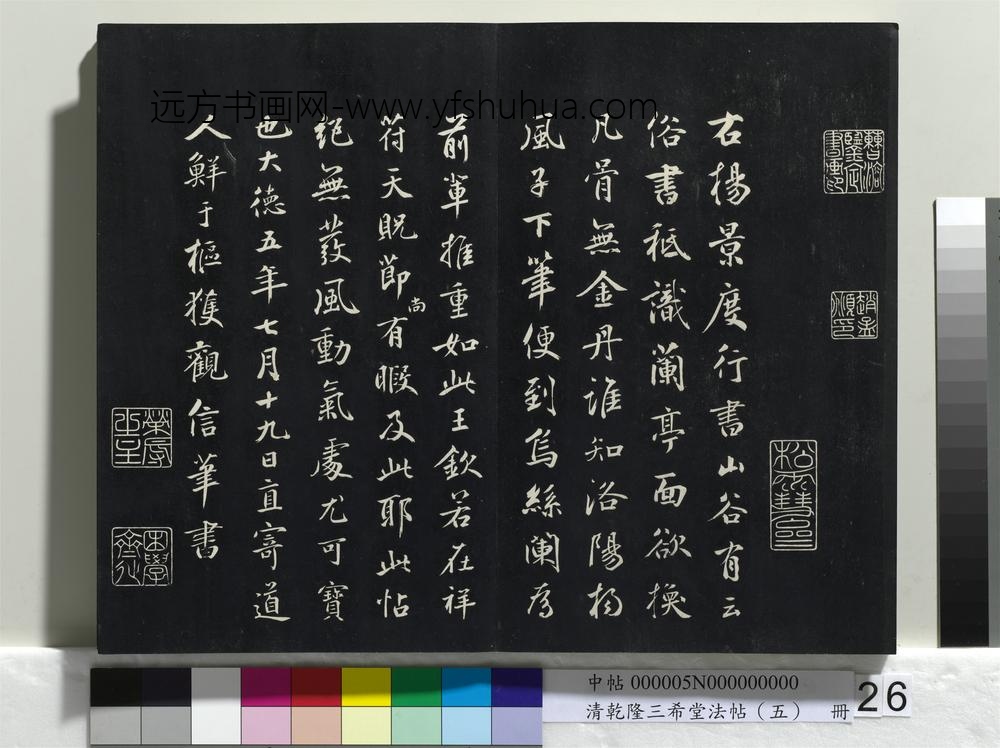 右楊景度行書山谷有云
俗書秖識蘭亭面欲換
凡骨無金丹誰知洛陽楊
風子下筆便到烏絲闌為
前輩推重如此王欽若在祥
符天貺節尚有暇及此耶此帖
絕無發風動氣處尤可寶
也大德五年七月十九日直寄道
人鮮于樞獲觀信筆書
困學齋
远方书画网-www.yfshuhua.com
中帖 000005N000000000
清乾隆三希堂法帖（五） 冊
26